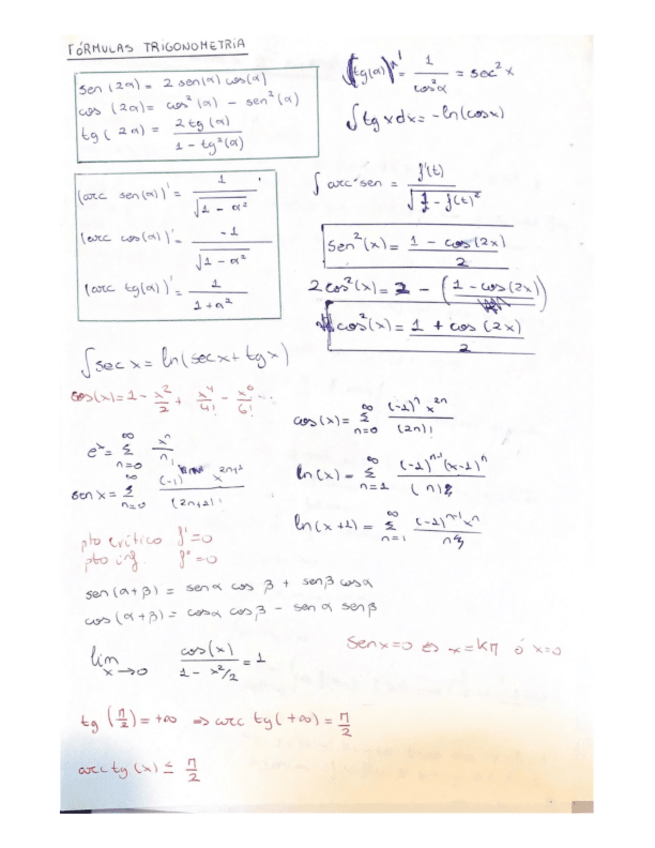 FÓRMULAS TRIGONOMETRÍA
sen (2α) = 2 sen(α) cos(α)
cos (2α) = cos²(α) - sen²(α)
tg (2α) = 2 tg(α) / 1 - tg²(α)
(tg(α))' = 1 / cos²α = sec² x
∫ tg x dx = - ln(cos x)
(arc sen(α))' = 1 / √1 - α²
(arc cos(α))' = -1 / √1 - α²
(arc tg(α))' = 1 / 1 + α²
∫ arc sen = f'(t) / √1 - f(t)²
sen²(x) = 1 - cos(2x) / 2
2 cos²(x) = 2 - (1 - cos(2x))
cos²(x) = 1 + cos (2x) / 2
∫ sec x = ln(sec x + tg x)
cos(x) = 1 - x²/2 + x⁴/4! - x⁶/6! ...
e^x = ∞ Σ n=0 x^n / n!
sen x = ∞ Σ n=0 (-1) x^2n+1 / (2n+1)!
cos(x) = ∞ Σ n=0 (-1)^n x^2n / (2n)!
ln(x) = ∞ Σ n=1 (-1)^n-1 (x-1)^n / (n)
ln(x+1) = ∞ Σ n=1 (-1)^n-1 x^n / n
pto crítico f' = 0
pto inf. f'' = 0
sen (α+β) = sen α cos β + sen β cos α
cos (α+β) = cos α cos β - sen α sen β
lim x→0 cos(x) / 1 - x²/2 = 1
Sen x = 0 ⇔ x = kπ ó x = 0
tg (π/2) = +∞ ⇒ arc tg (+∞) = π/2
arc tg (x) ≤ π/2